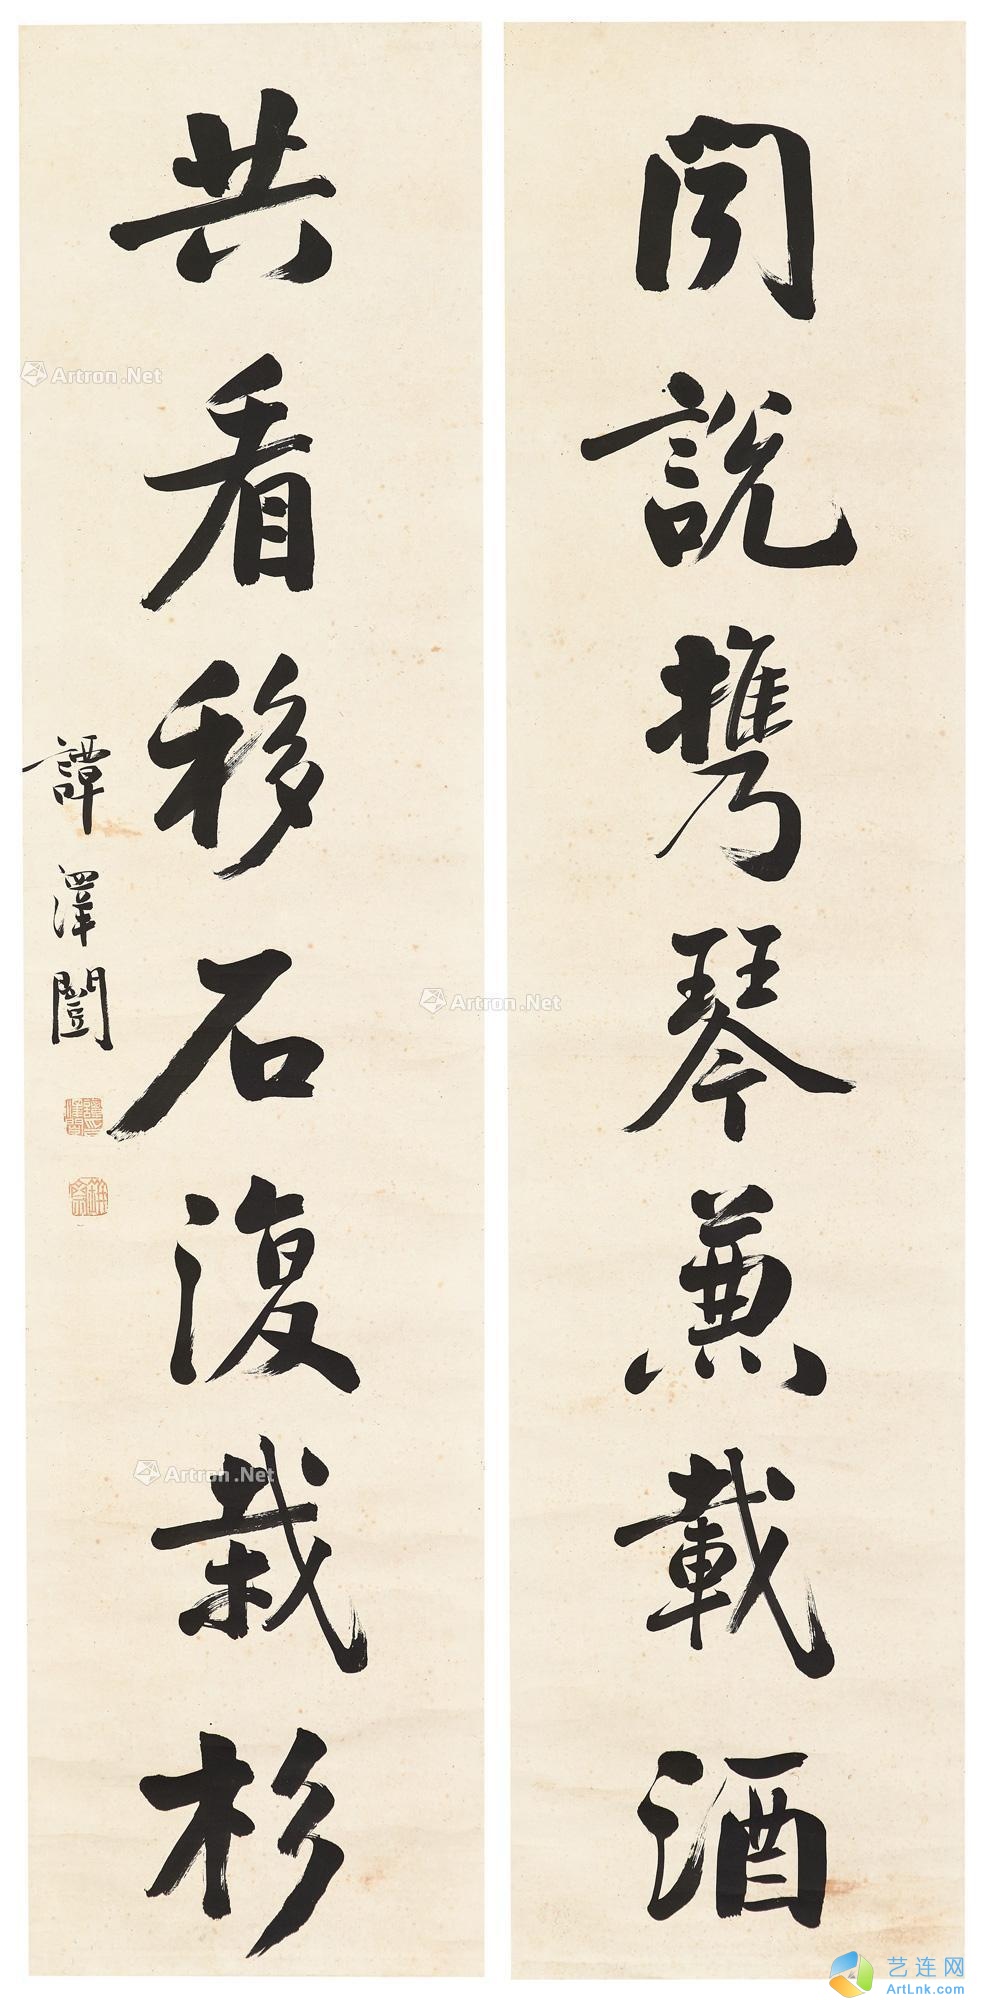 聞說攜琴兼載酒
共看移石復栽杉
譚澤闓
Artron.Net
Artron.Net
Artron.Net
艺连网
ArtLnk.com